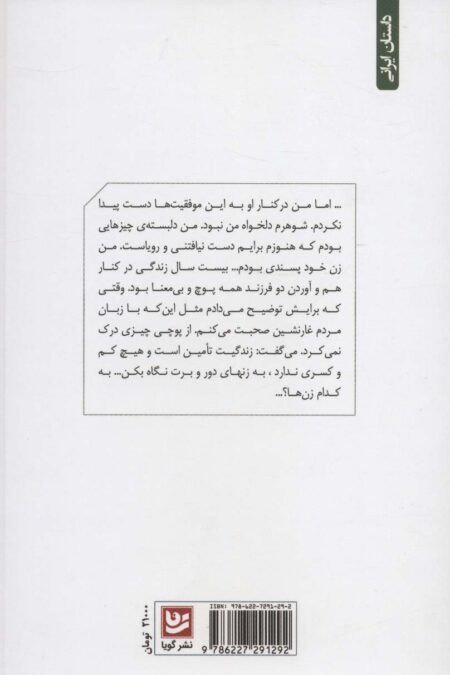 داستان ایرانی
... اما من در کنار او به این موفقیت‌ها دست پیدا
نکردم. شوهرم دلخواه من نبود. من دلبسته‌ی چیزهایی
بودم که هنوزم برایم دست نیافتنی و رویاست. من
زن خود پسندی بودم... بیست سال زندگی در کنار
هم و آوردن دو فرزند همه پوچ و بی‌معنا بود. وقتی
که برایش توضیح می‌دادم مثل این‌که با زبان
مردم غارنشین صحبت می‌کنم. از پوچی چیزی درک
نمی‌کرد. می‌گفت: زندگیت تأمین است و هیچ کم
و کسری ندارد، به زنهای دور و برت نگاه بکن... به
کدام زن‌ها؟...
ISBN: 978-622-7291-29-2
9 786227 291292
نشر گویا
۳۱۰۰۰ تومان